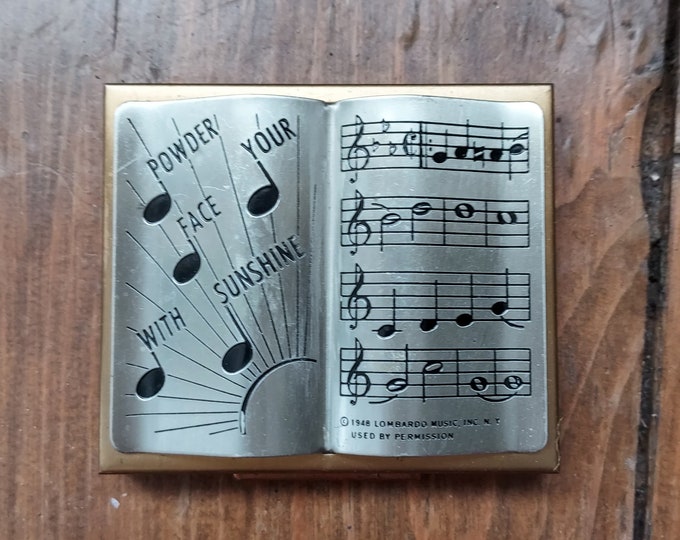 POWDER YOUR
FACE
WITH SUNSHINE
© 1948 LOMBARDO MUSIC, INC. N. Y.
USED BY PERMISSION